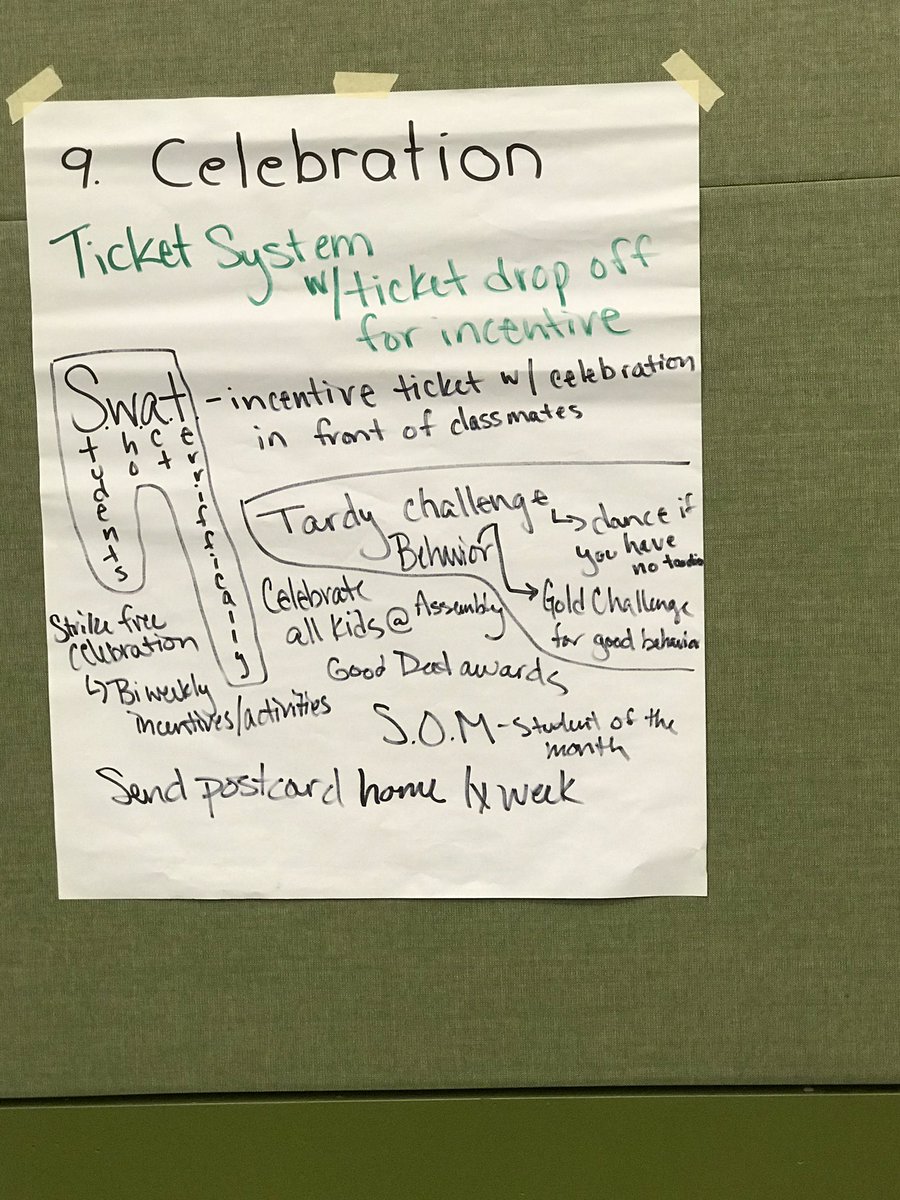 9. Celebration
Ticket System
w/ticket drop off
for incentive
S.w.a.t. - incentive ticket w/ celebration
in front of classmates
Students
who
act
terrifically
Tardy challenge
↳ dance if
you have
no
Behavior
→ Gold Challenge
for good behavior
Celebrate
all kids @ Assembly
Strike free
celebration
↳ Biweekly
incentives/activities
Good Deed awards
S.O.M - Student of the
month
Send postcard home 1x week